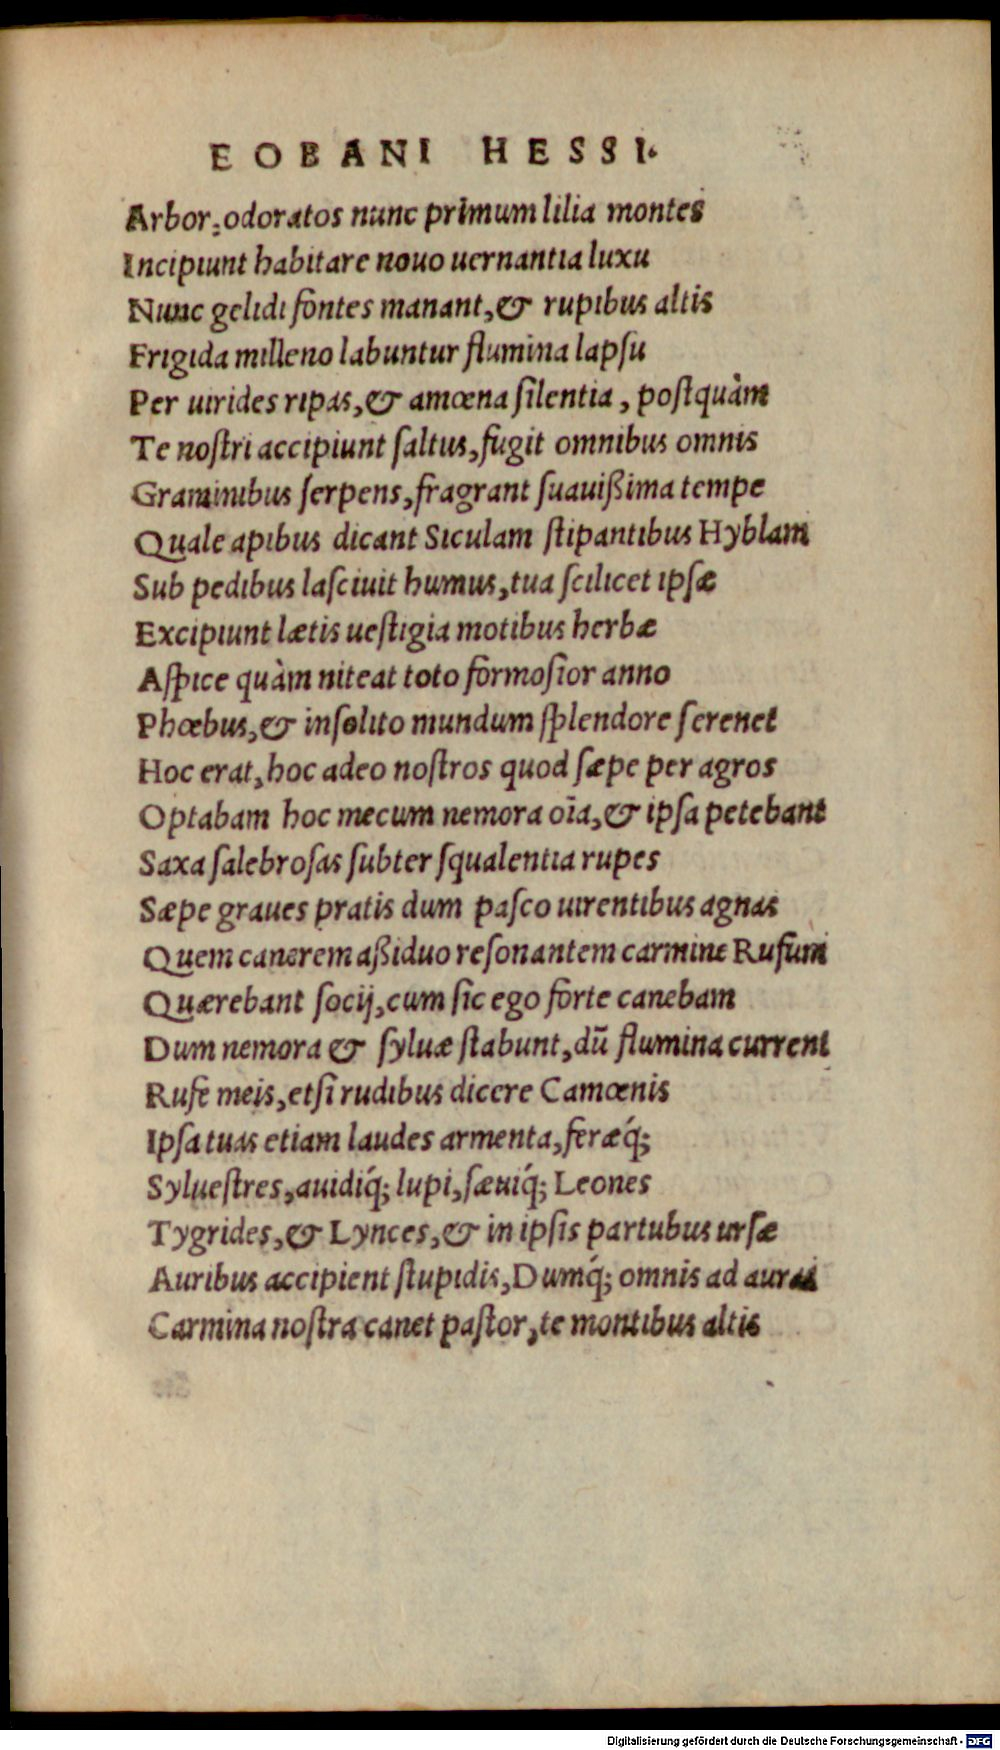 EOBANI HESSI.
Arbor, odoratos nunc primum lilia montes
Incipiunt habitare nouo uernantia luxu
Nunc gelidi fontes manant, & rupibus altis
Frigida milleno labuntur flumina lapſu
Per uirides ripas, & amœna ſilentia, poſtquàm
Te noſtri accipiunt ſaltus, fugit omnibus omnis
Graminibus ſerpens, fragrant ſuauißima tempe
Quale apibus dicant Siculam ſtipantibus Hyblam
Sub pedibus laſciuit humus, tua ſcilicet ipſæ
Excipiunt lætis ueſtigia motibus herbæ
Aſpice quàm niteat toto formoſior anno
Phœbus, & inſolito mundum ſplendore ſerenet
Hoc erat, hoc adeo noſtros quod ſæpe per agros
Optabam hoc mecum nemora oīa, & ipſa petebant
Saxa ſalebroſas ſubter ſqualentia rupes
Sæpe graues pratis dum paſco uirentibus agnas
Quem canerem aßiduo reſonantem carmine Rufum
Quærebant ſocij, cum ſic ego forte canebam
Dum nemora & ſyluæ ſtabunt, dū flumina current
Rufe meis, etſi rudibus dicere Camœnis
Ipſa tuas etiam laudes armenta, feræq́;
Sylueſtres, auidiq́; lupi, ſæuiq́; Leones
Tygrides, & Lynces, & in ipſis partubus urſæ
Auribus accipient ſtupidis, Dumq́; omnis ad auras
Carmina noſtra canet paſtor, te montibus altis
Digitalisierung gefördert durch die Deutsche Forschungsgemeinschaft - DFG